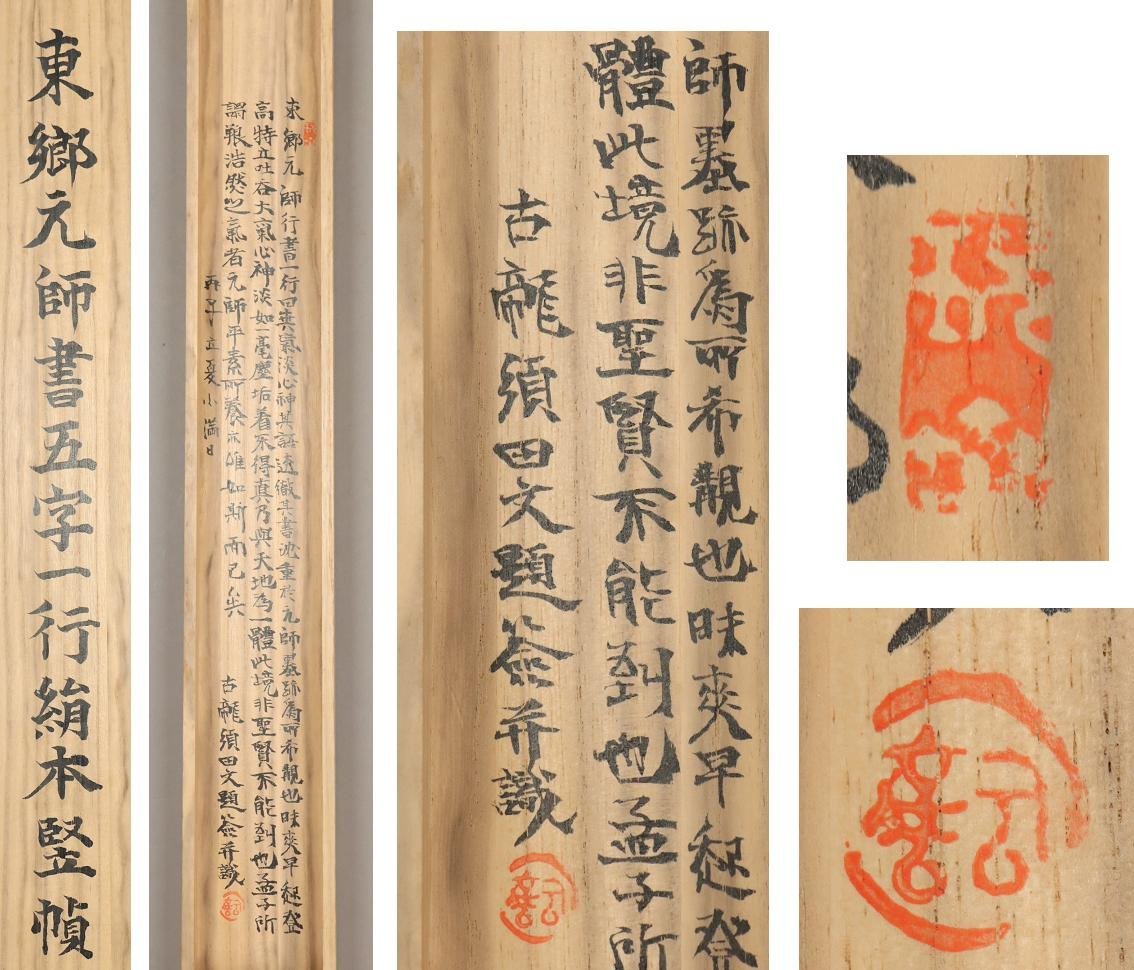 東鄉元師書五字一行絹本竪幀
東鄉元師行書一行曰氣淡心神其語透徹其書沈重於元師墨跡爲所希覯也昧爽早起登
高特立吐吞大氣心神淡如一毫塵垢着不得真乃與天地為一體此境非聖賢不能到也孟子所
謂浩然之氣者元師平素所養亦唯如斯而已矣
古龍須田文題簽并識
立夏小満日
師墨跡爲所希覯也昧爽早起登
體此境非聖賢不能到也孟子所
古龍須田文題簽并識